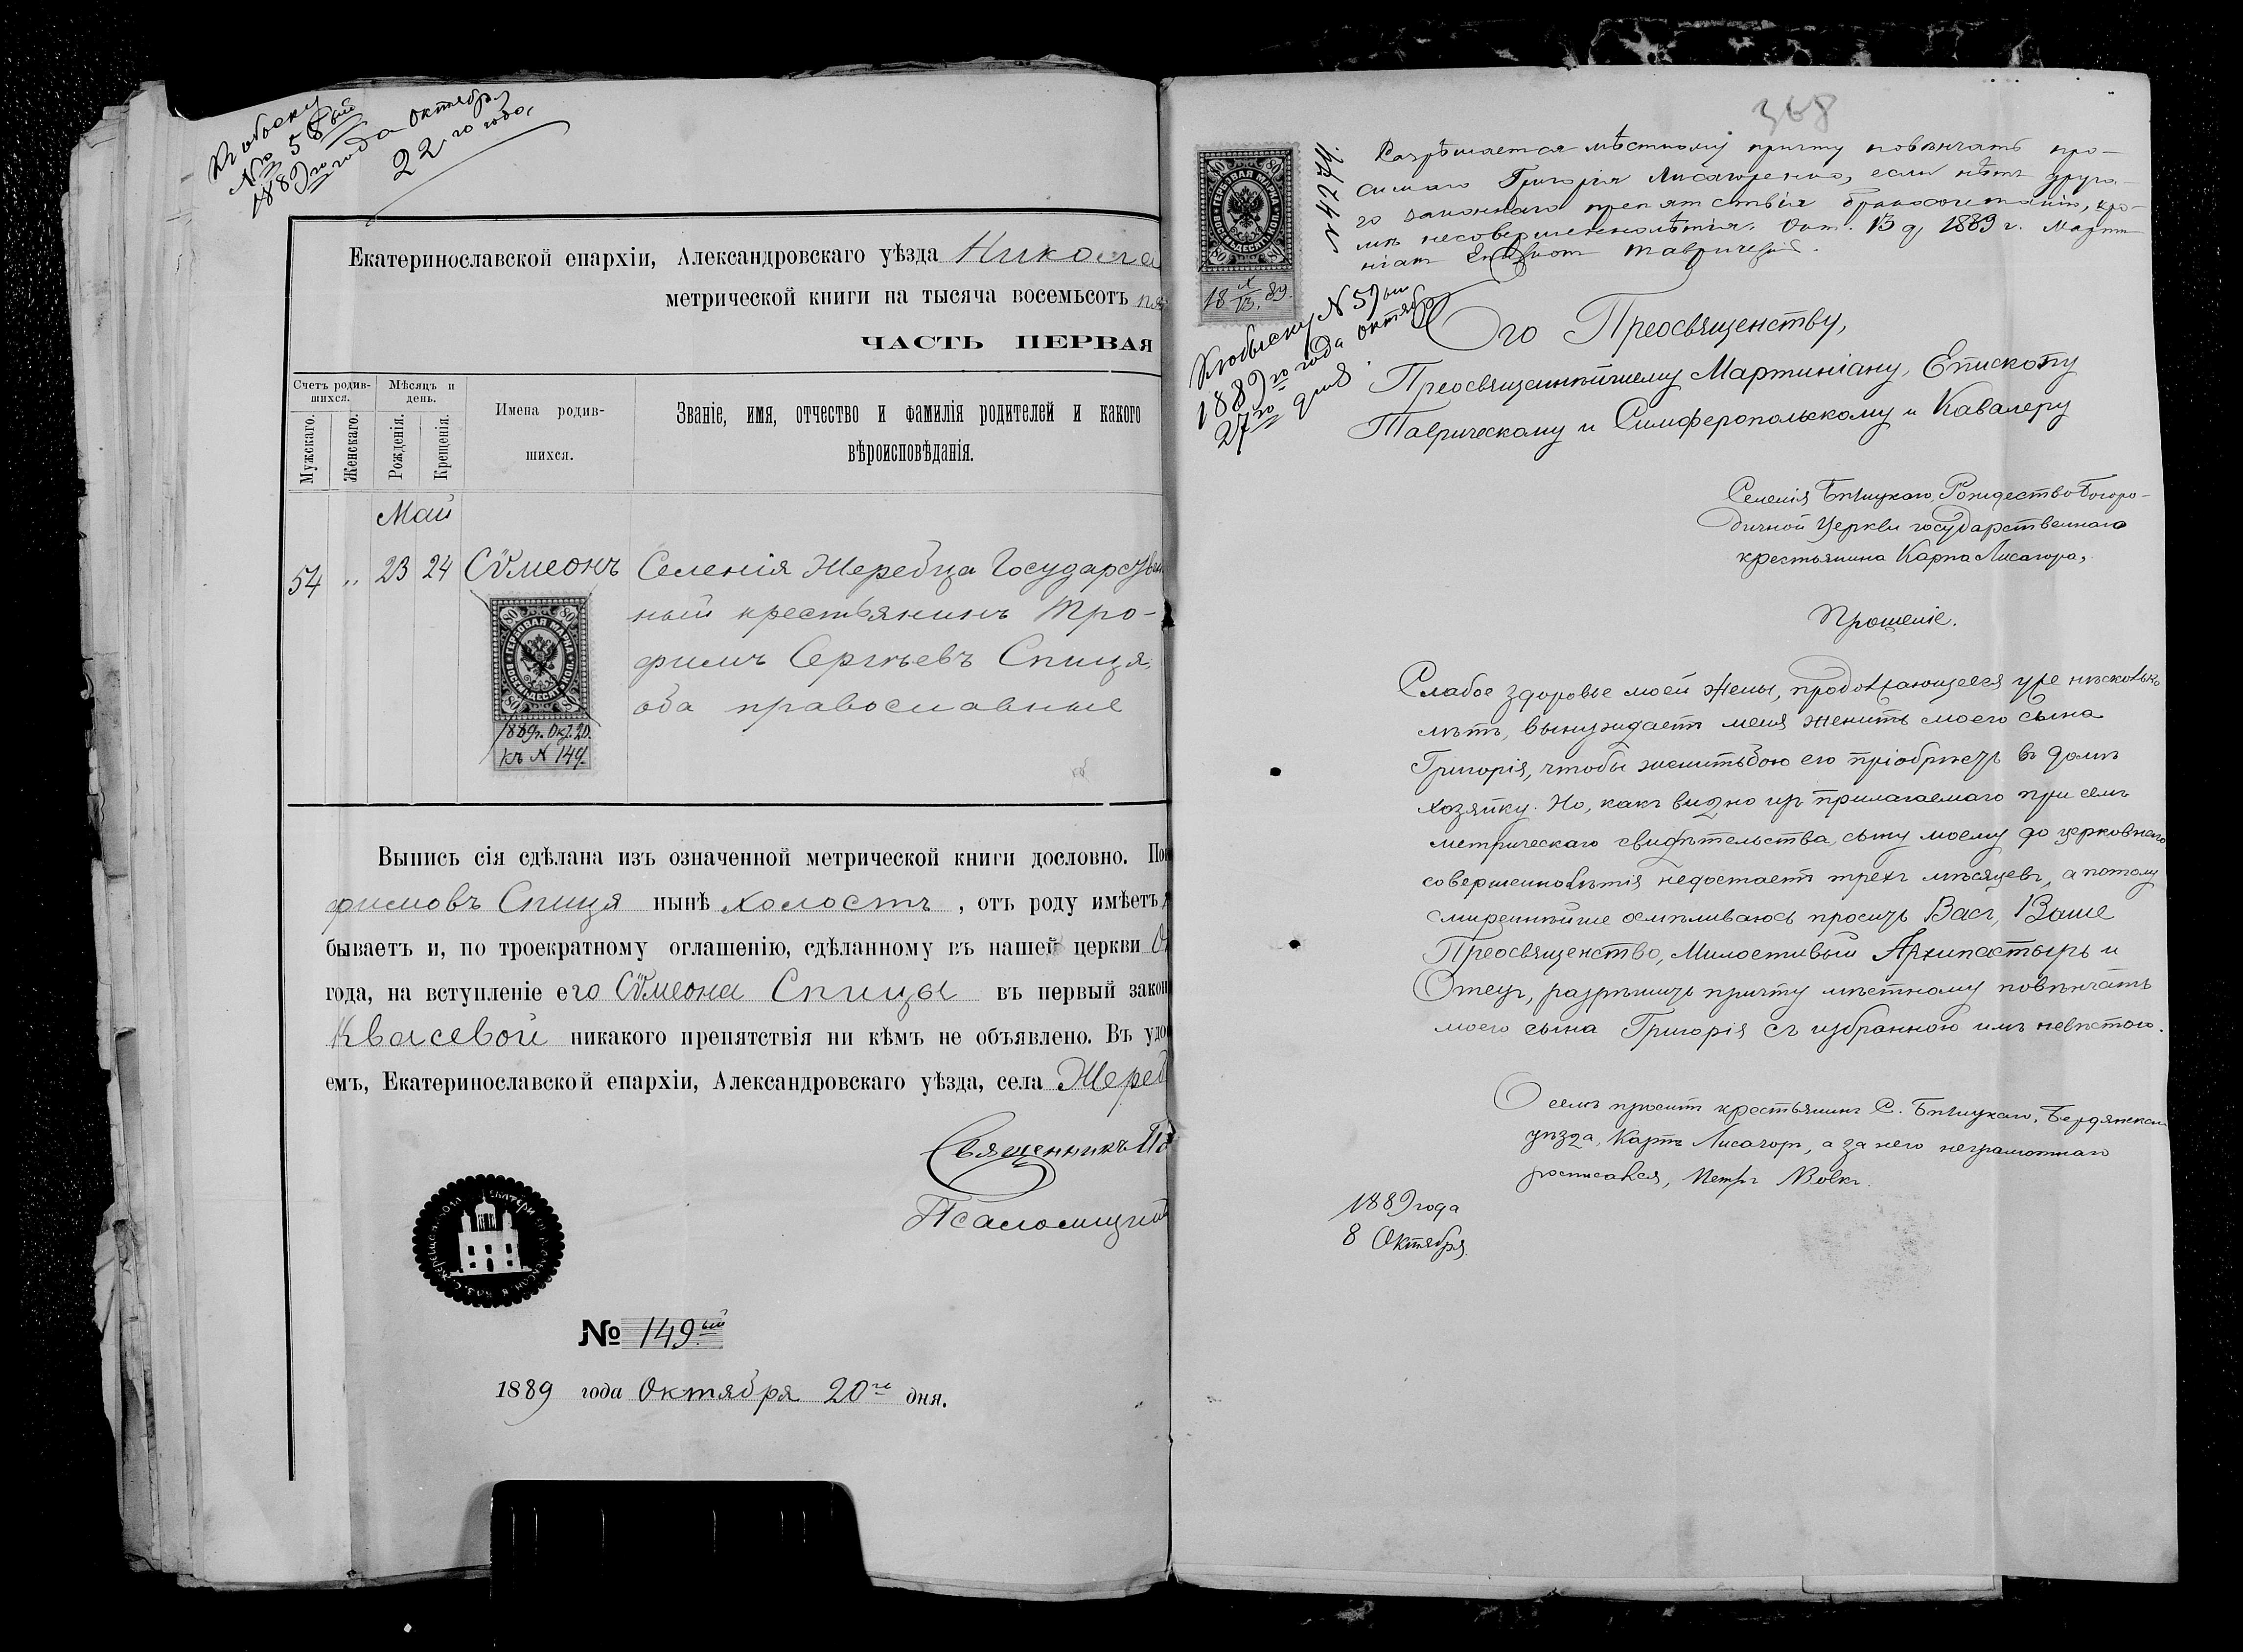 Къ обыску
№ 58ый
1889го года октября
22го года,
Екатеринославской епархіи, Александровскаго уѣзда Никола
метрической книги на тысяча восемьсотъ
ЧАСТЬ ПЕРВАЯ
Счетъ родив-
шихся.
Мѣсяцъ и
день.
Мужскаго.
Женскаго.
Рожденія.
Крещенія.
Имена родив-
шихся.
Званіе, имя, отчество и фамилія родителей и какого
вѣроисповѣданія.
Май
54 " 23 24 Сѵмеонъ Селенія Жеребца Государствен
ный крестьянинъ Тро-
фимъ Сергѣевъ Спиця,
оба православные
80 80
ГЕРБОВАЯ МАРКА
ВОСЕМЬДЕСЯТЪ КОП.
80 80
1889г. Окт. 20.
къ № 149.
Выпись сія сдѣлана изъ означенной метрической книги дословно.
фимовъ Спиця нынѣ холостъ, отъ роду имѣетъ
бываетъ и, по троекратному оглашенію, сдѣланному въ нашей церкви
года, на вступленіе его Сѵмеона Спицы въ первый закон
Квасевой никакого препятствія ни кѣмъ не объявлено. Въ удо
емъ, Екатеринославской епархіи, Александровскаго уѣзда, села Жереб
Священникъ
Псаломщикъ
№ 149.ый
1889 года Октября 20го дня.
368
80 80
ГЕРБОВАЯ МАРКА
ВОСЕМЬДЕСЯТЪ КОП.
80 80
18 X/13. 89.
Разрѣшается мѣстному причту повѣнчать про-
симаго Григорія Лисагоренко, если нѣтъ друга-
го законнаго препятствія бракосочетанію, кро-
мѣ несовершеннолѣтія. Окт. 13 д. 1889 г. Марти-
ніанъ Епископъ Таврическій.
Къ обыску № 57ый
1889го года октября
27го дня
Его Преосвященству,
Преосвященнѣйшему Мартиніану, Епископу
Таврическому и Симферопольскому и Кавалеру
Селенія Бѣлицкаго, Рождество Богоро-
дичной Церкви государственнаго
крестьянина Карпа Лисагора,
Прошеніе.
Слабое здоровье моей жены, продолжающееся уже нѣсколько
лѣтъ, вынуждаетъ меня женить моего сына
Григорія, чтобы женитьбою его пріобрѣсть въ домъ
хозяйку. Но, какъ видно изъ прилагаемаго при семъ
метрическаго свидѣтельства, сыну моему до церковнаго
совершеннолѣтія недостаетъ трехъ мѣсяцевъ, а потому
смиреннѣйше осмѣливаюсь просить Васъ, Ваше
Преосвященство, Милостивый Архипастырь и
Отецъ, разрѣшить причту мѣстному повѣнчать
моего сына Григорія съ избранною имъ невѣстою.
О семъ проситъ крестьянинъ С. Бѣлицкаго, Бердянскаго
уѣзда, Карпъ Лисагоръ, а за него неграмотнаго
росписался, Петръ Вовкъ.
1889 года
8 Октября.